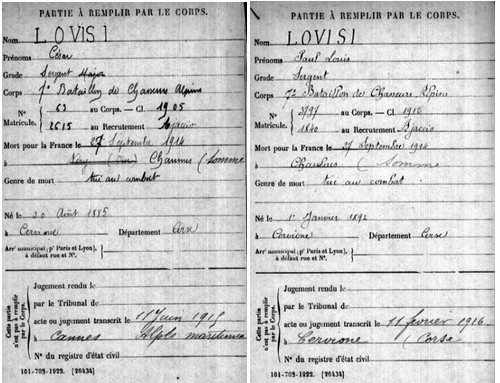 PARTIE À REMPLIR PAR LE CORPS.
Nom LOVISI
Prénoms César
Grade Sergent Major
Corps 7e Bataillon de Chasseurs Alpins
N° 63 au Corps. — Cl. 1905
Matricule. 2615 au Recrutement Ajaccio
Mort pour la France le 27 Septembre 1914
à Chaulnes (Somme
Genre de mort tué au combat
Né le 20 Août 1885
à Cervione Département Corse
Arr' municipal (p' Paris et Lyon), à défaut rue et N°.
Cette partie n'est pas à remplir par le Corps.
Jugement rendu le
par le Tribunal de
acte ou jugement transcrit le 11 Juin 1915
à Cannes Alpes maritimes
N° du registre d'état civil
101-708-1922. [26434]
PARTIE À REMPLIR PAR LE CORPS.
Nom LOVISI
Prénoms Paul Louis
Grade Sergent
Corps 7e Bataillon de Chasseurs Alpins
N° 3797 au Corps. — Cl. 1912
Matricule. 1840 au Recrutement Ajaccio
Mort pour la France le 27 Septembre 1914
à Chaulnes (Somme
Genre de mort tué au combat
Né le 1er Janvier 1892
à Cervione Département Corse
Arr' municipal (p' Paris et Lyon), à défaut rue et N°.
Cette partie n'est pas à remplir par le Corps.
Jugement rendu le
par le Tribunal de
acte ou jugement transcrit le 11 février 1916
à Cervione (Corse
N° du registre d'état civil
101-708-1922. [26434]